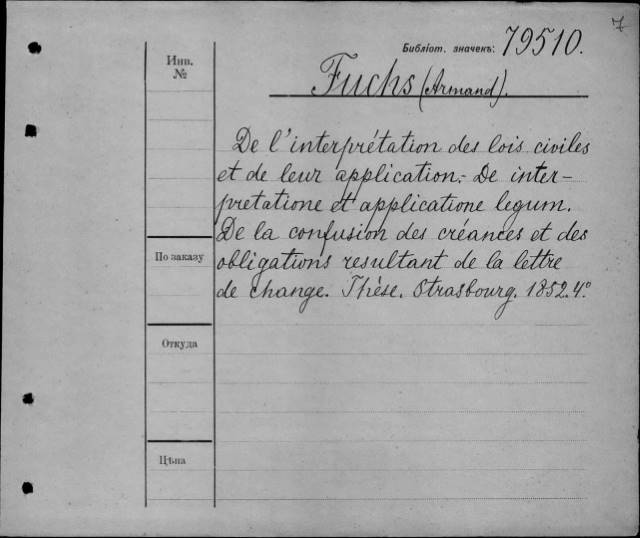 7
Библіот. значекъ: 79510.
Инв.
№
Fuchs (Armand).
De l'interprétation des lois civiles
et de leur application.- De inter-
pretatione et applicatione legum.
De la confusion des créances et des
По заказу
obligations resultant de la lettre
de change. Thèse. Strasbourg. 1852. 4°
Откуда
Цѣна